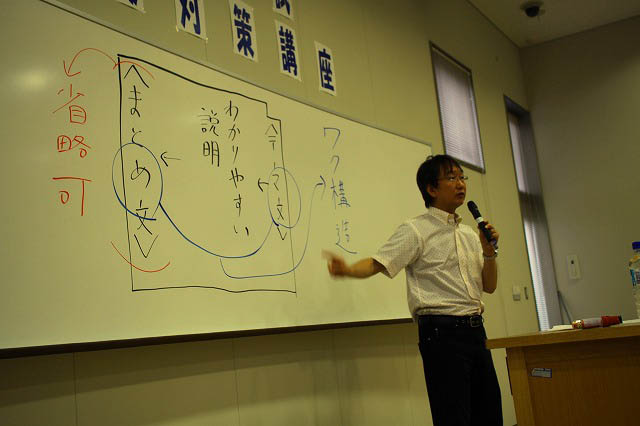 対策講座
ワク構造
〈テーマ文〉
わかりやすい
説明
〈まとめ文〉
省略可